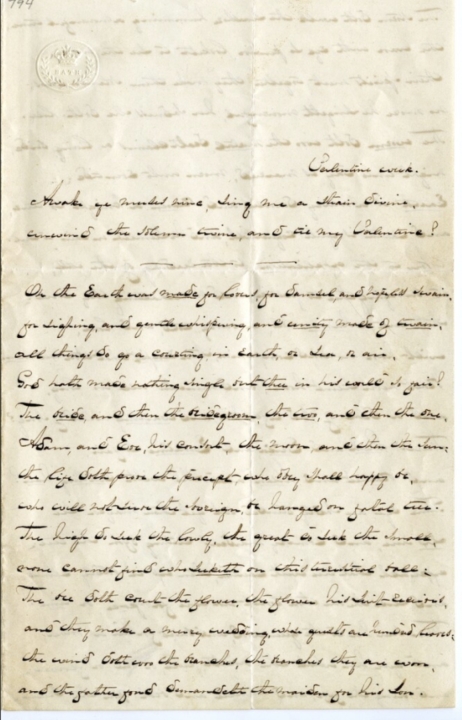 794
Valentine week.
Awake ye muses nine, sing me a strain divine,
unwind the solemn twine, and tie my Valentine!
Oh the Earth was made for lovers, for damsel, and hopeless swain,
for sighing, and gentle whispering, and unity made of twain,
all things do go a courting, in earth, or sea, or air,
God hath made nothing single but thee in his world so fair!
The bride, and then the bridegroom, the two, and then the one,
Adam, and Eve, his consort, the moon and then the sun;
the life doth prove the precept, who obey shall happy be,
who will not serve the sovreign, be hanged on fatal tree.
The high do seek the lowly, the great do seek the small,
none cannot find who seeketh on this terrestrial ball;
The bee doth court the flower, the flower his suit receives,
and they make a merry wedding, whose guests are hundred leaves;
the wind doth woo the branches, the branches they are won,
and the father fond demandeth the maiden for his son.